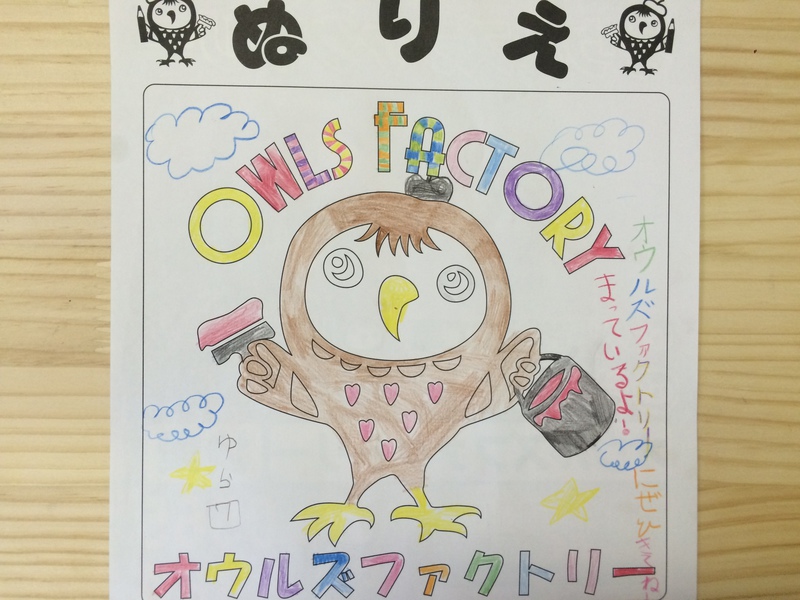 ぬりえ
OWLS FACTORY
オウルズファクトリーにぜひきてね!
まっているよ!
ゆら
7
オウルズファクトリー